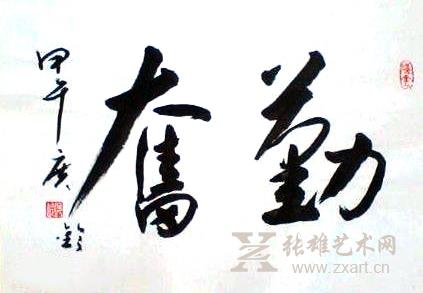 勤奮
甲午 广铃
张雄艺术网
www.zxart.cn